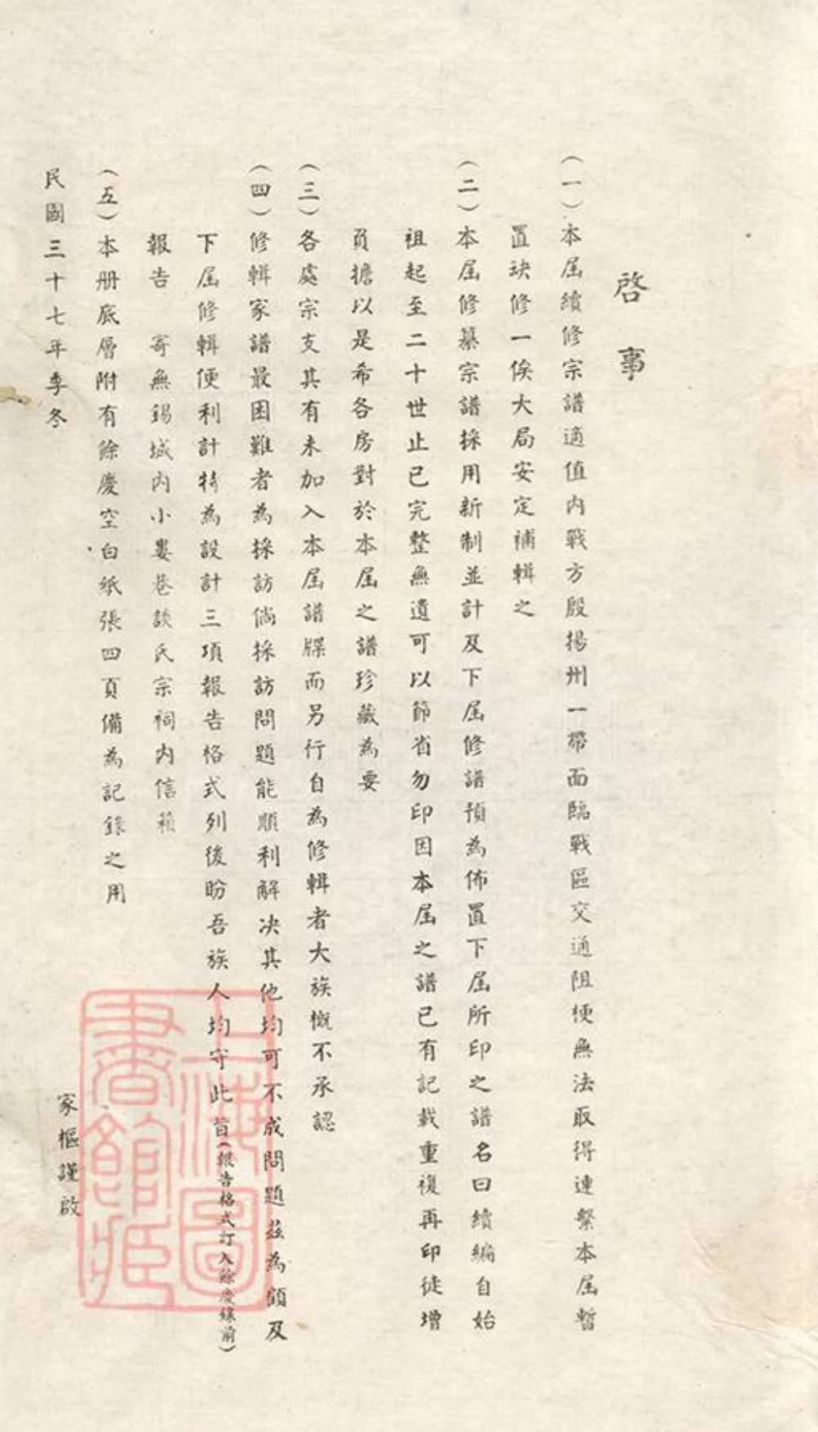 啓事
(一)本屆續修宗譜適值內戰方殷揚州一帶面臨戰區交通阻梗無法取得連繫本屆暫
置玦修一俟大局安定補輯之
(二)本屆修纂宗譜採用新制並計及下屆修譜預為佈置下屆所印之譜名曰續編自始
祖起至二十世止已完整無遺可以節省勿印因本屆之譜已有記載重複再印徒增
負擔以是希各房對於本屆之譜珍藏為要
(三)各處宗支其有未加入本屆譜牒而另行自為修輯者大族概不承認
(四)修輯家譜最困難者為採訪倘採訪問題能順利解决其他均可不成問題茲為顧及
下屆修輯便利計特為設計三項報告格式列後盼吾族人均守此旨(報告格式訂入餘慶錄前)
報告 寄無錫城內小婁巷談氏宗祠內信箱
(五)本册底層附有餘慶空白紙張四頁備為記錄之用
民國三十七年季冬
家樞謹啟
上海圖書館藏